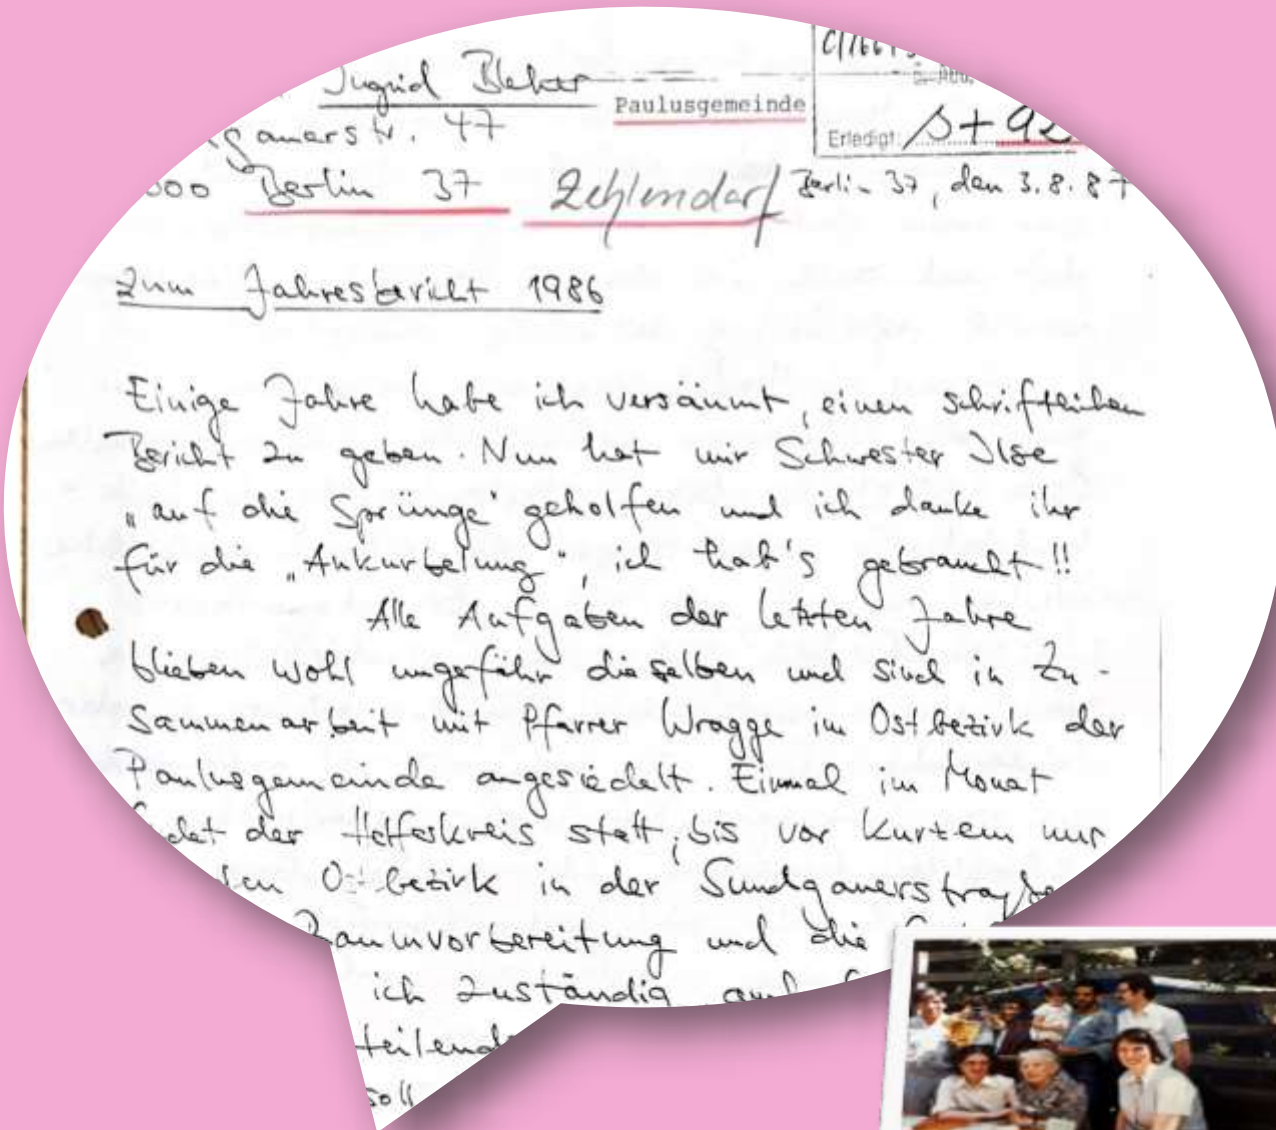 Ingrid Bleker
Paulusgemeinde
gauerstr. 47
Erledigt:
000 Berlin 37 Zehlendorf Berlin 37, den 3.8.87
Zum Jahresbericht 1986
Einige Jahre habe ich versäumt, einen schriftlichen
Bericht zu geben. Nun hat mir Schwester Ilse
„auf die Sprünge" geholfen und ich danke ihr
für die „Ankurbelung", ich hab's gebraucht!!
Alle Aufgaben der letzten Jahre
blieben wohl ungefähr dieselben und sind in Zu-
sammenarbeit mit Pfarrer Wragge im Ostbezirk der
Paulusgemeinde angesiedelt. Einmal im Monat
ndet der Helferkreis statt, bis vor kurzem nur
den Ostbezirk in der Sundgauerstraße
Raumvorbereitung und die
ich zuständig
teilend
soll